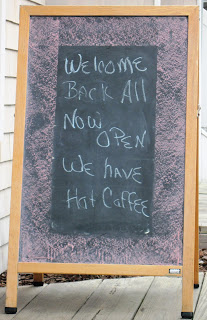 Welcome
Back All
NOW
OPEN
We HAVE
Hot Coffee